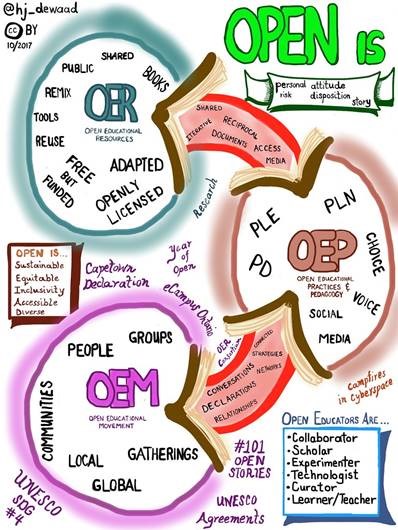 @hj_dewaad
cc BY
10/2017
OPEN IS
personal attitude
risk disposition
story
SHARED
PUBLIC
BOOKS
REMIX
OER
TOOLS
OPEN EDUCATIONAL
RESOURCES
REUSE
FREE
BUT
FUNDED
ADAPTED
OPENLY
LICENSED
SHARED
ITERATIVE
RECIPROCAL
DOCUMENTS
ACCESS
MEDIA
Research
PLE
PLN
PD
OEP
CHOICE
OPEN EDUCATIONAL
PRACTICES &
PEDAGOGY
VOICE
SOCIAL
MEDIA
OPEN IS...
Sustainable
Equitable
Inclusivity
Accessible
Diverse
Capetown
Declaration
year
of
Open
eCampus Ontario
OER
Consortium
CONNECTED
STRATEGIES
NETWORKS
CONVERSATIONS
DECLARATIONS
RELATIONSHIPS
PEOPLE
GROUPS
OEM
OPEN EDUCATIONAL
MOVEMENT
COMMUNITIES
GATHERINGS
LOCAL
GLOBAL
campfires
in cyberspace
#101
OPEN
STORIES
UNESCO
SDG
#4
UNESCO
Agreements
OPEN EDUCATORS ARE...
• Collaborator
• Scholar
• Experimenter
• Technologist
• Curator
• Learner/Teacher